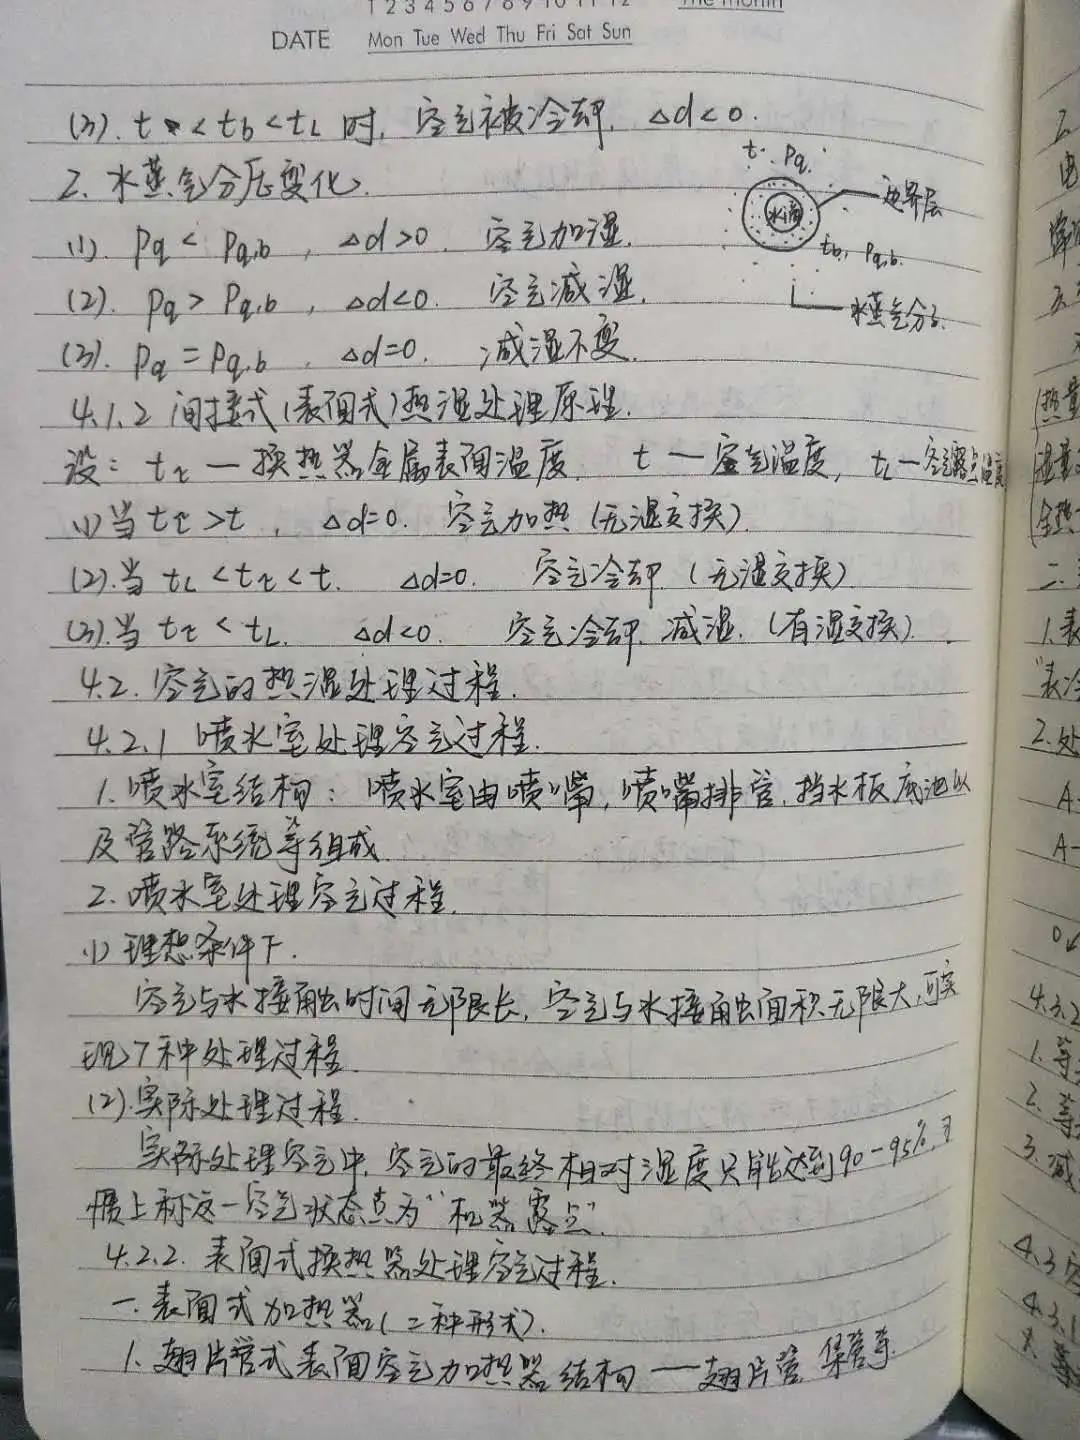 1 2 3 4 5 6 7 8 9 10 11 12 The Month
DATE Mon Tue Wed Thu Fri Sat Sun
(3). t < tb < tL 时, 空气被冷却, Δd<0.
2. 水蒸气分压变化.
(1). Pq < Pq,b, Δd>0. 空气加湿.
(2). Pq > Pq,b, Δd<0. 空气减湿.
(3). Pq = Pq,b. Δd=0. 减湿不变.
t. Pq.
水滴
边界层
tb, Pq,b.
水蒸气分子.
4.1.2 间接式(表面式)热湿处理原理.
设: tτ — 换热器金属表面温度. t — 空气温度, tL — 空气露点温度
(1)当 tτ > t, Δd=0. 空气加热 (无湿交换).
(2).当 tL < tτ < t. Δd=0. 空气冷却 (无湿交换)
(3).当 tτ < tL. Δd<0. 空气冷却, 减湿. (有湿交换).
4.2. 空气的热湿处理过程.
4.2.1 喷水室处理空气过程.
1. 喷水室结构: 喷水室由喷嘴, 喷嘴排管, 挡水板, 底池以
及管路系统等组成.
2. 喷水室处理空气过程.
(1) 理想条件下.
空气与水接触时间无限长, 空气与水接触面积无限大, 可实
现7种处理过程.
(2).实际处理过程.
实际处理空气中, 空气的最终相对湿度只能达到90-95%, 习
惯上称这一空气状态点为“机器露点”.
4.2.2. 表面式换热器处理空气过程.
一. 表面式加热器(二种形式).
1. 翅片管式表面空气加热器结构 — 翅片管.
2.
电
热量
湿量
全热
二.
1. 表
“表冷
2. 处
A-
A-
4.3.2
1. 等
2. 等
3. 减
4.3
4.3.1